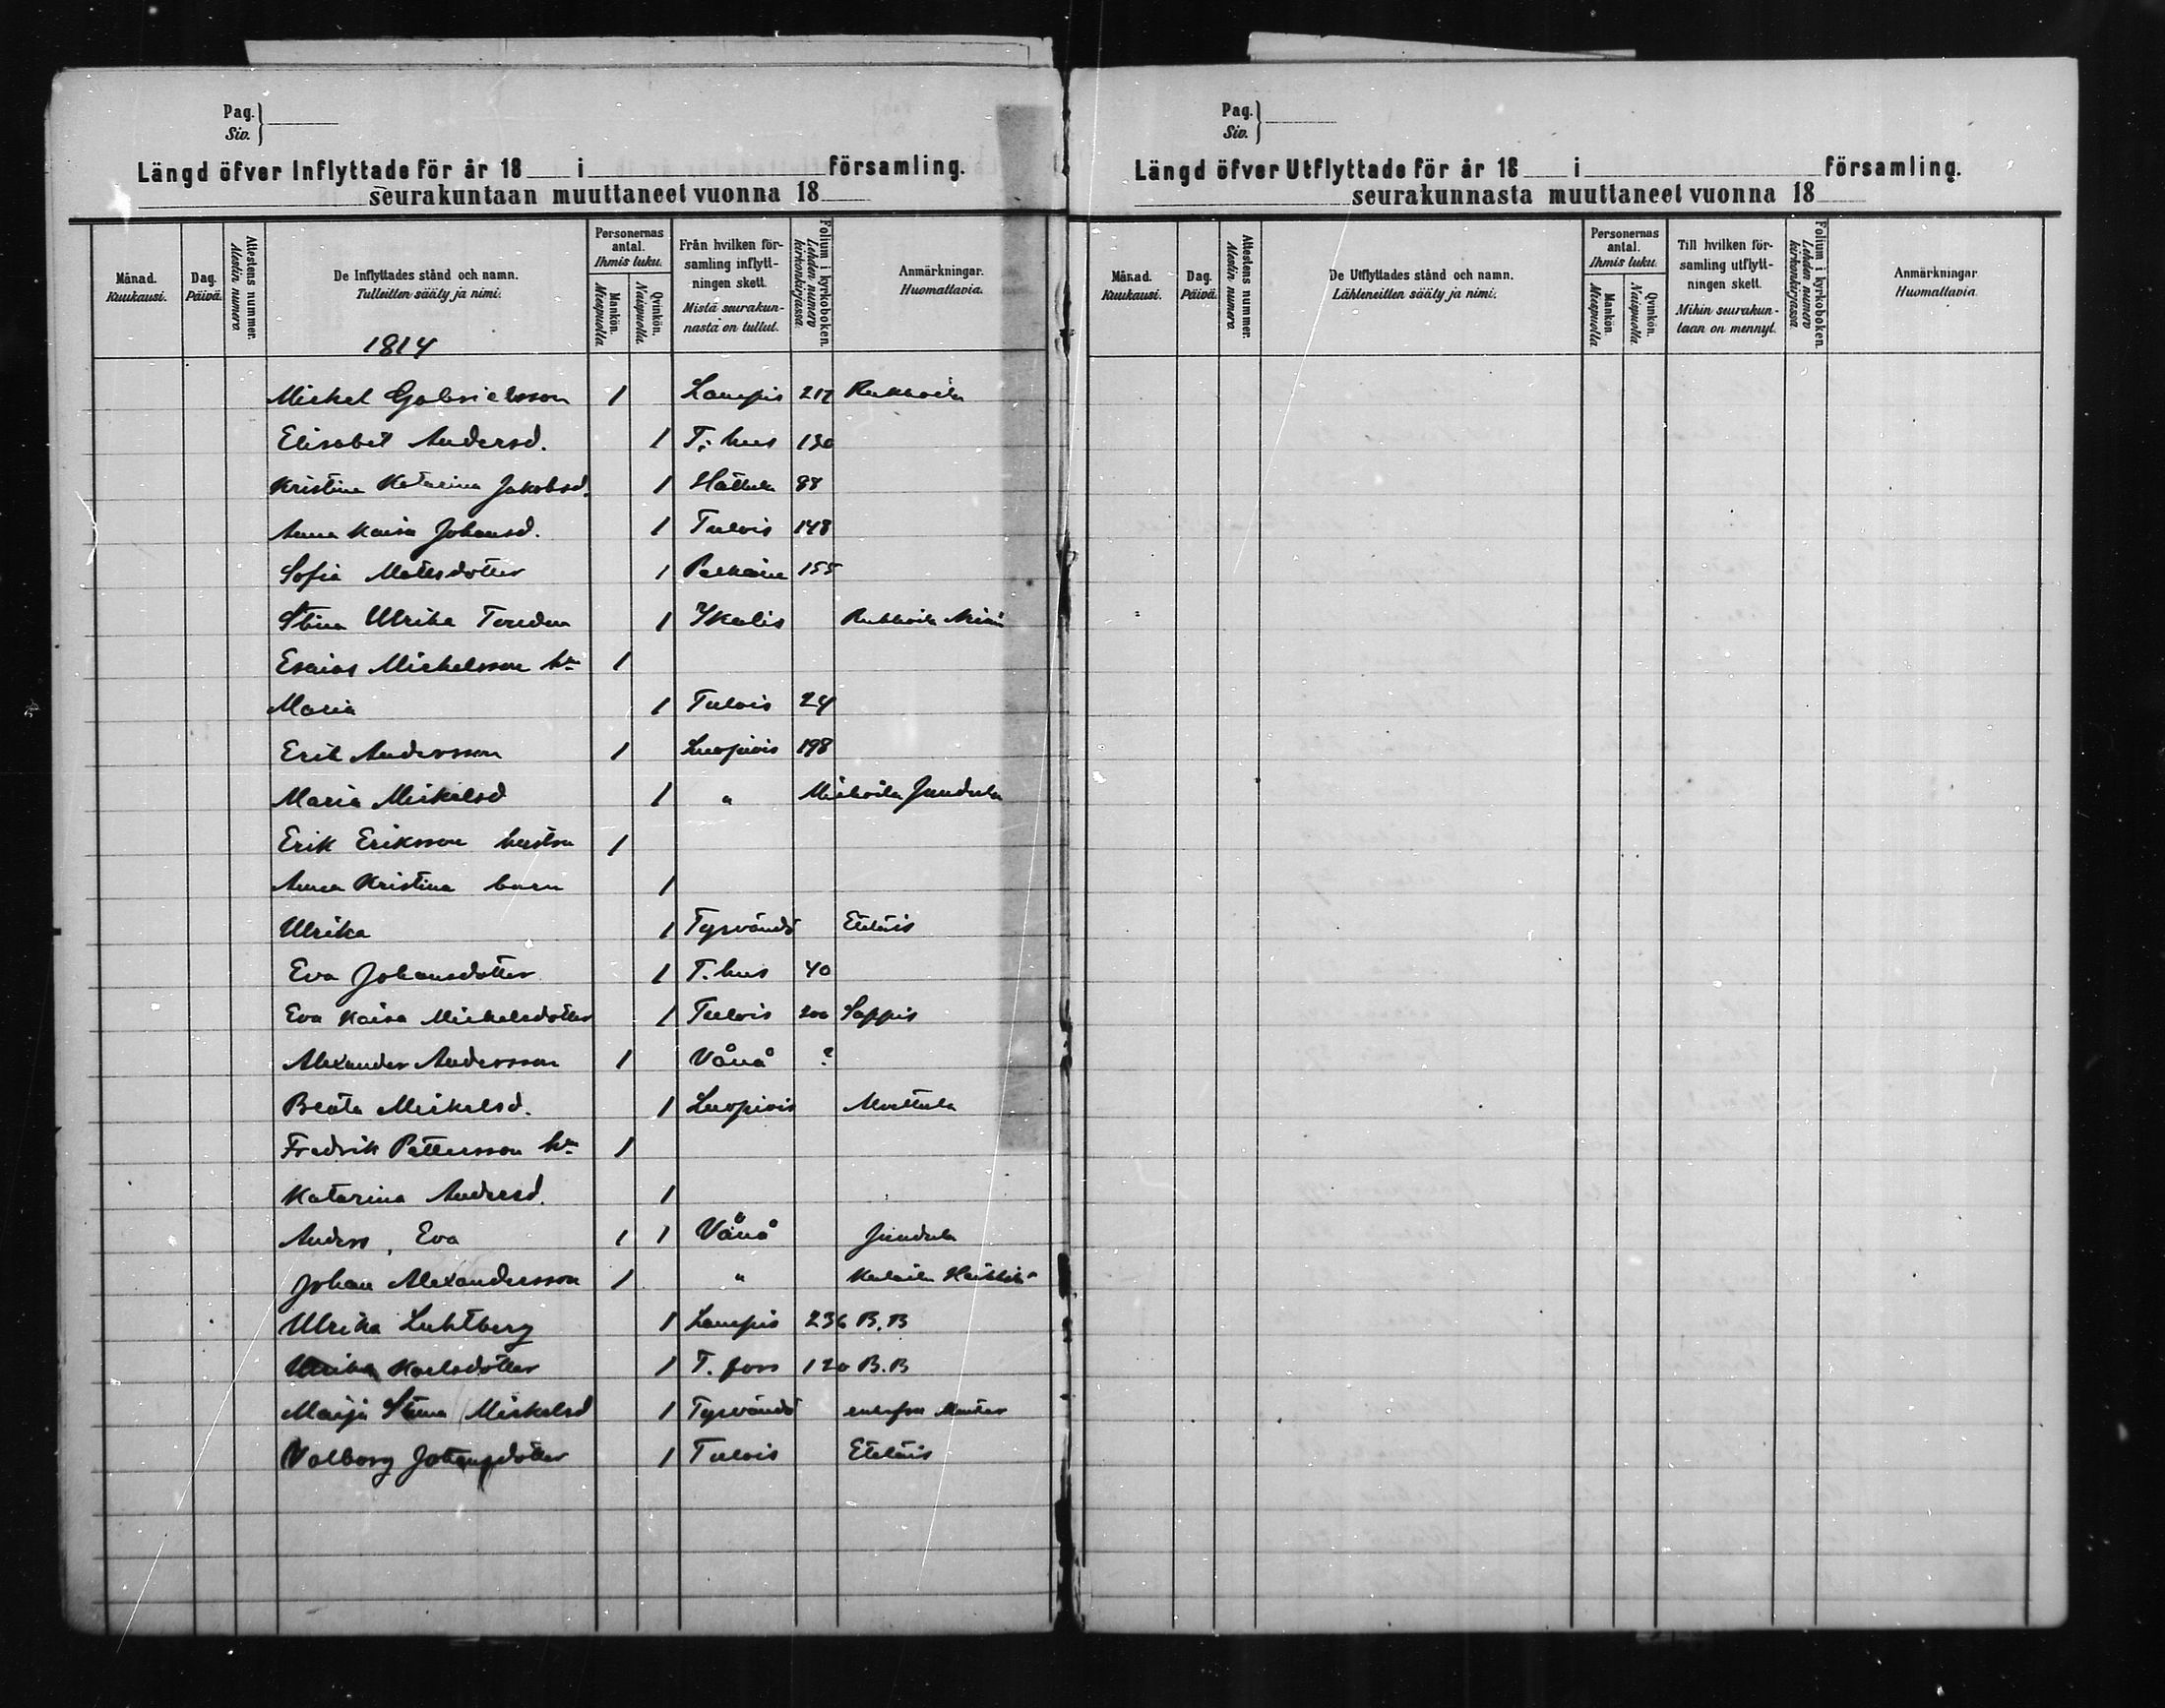 Pag.
Siv.
Längd öfver Inflyttade för år 18 i församling.
seurakuntaan muuttaneet vuonna 18
Månad.
Kuukausi.
Dag.
Päivä.
Attestens nummer.
Alestin numero.
De Inflyttades stånd och namn.
Tulleitten sääty ja nimi.
1814
Personernas antal.
Ihmis luku.
Mankön.
Miespuolta
Qvinkön.
Naispuolta.
Från hvilken för-
samling inflytt-
ningen skett.
Mistä seurakun-
nasta on tullut.
Folium i kyrkoboken.
Lehden numero kirkonkirjassa.
Anmärkningar.
Huomattavia.
Michel Gabrielsson 1 Lampis 217
Elisabet Andersd. 1 T:hus 130
Kristina Katarina Jakobsd. 1 Hattula 98
Anna Kaisa Johansd. 1 Tulois 148
Sofia Mattsdotter 1 Palkäne 155
Stina Ulrika 1 Ikalis
Esaias Michelsson hn 1
Maria 1 Tulois 24
Erik Andersson 1 Luopiois 198
Maria Mickelsd 1 "
Erik Eriksson hustru 1
Anna Kristina barn 1
Ulrika 1 Tyrväntö Eteläis
Eva Johansdotter 1 T.hus 40
Eva Kaisa Michelsdotter 1 Tulois 200 Sappis
Alexander Andersson 1 Vånå ?
Beata Mickelsd. 1 Luopiois
Fredrik Pettersson hn 1
Katarina Andersd. 1
Anders, Eva 1 1 Vånå
Johan Alexandersson 1 "
Ulrika Luhtberg 1 Lampis 236 B.B
Ulrika Karlsdotter 1 T. fors 120 B.B
Maija Stina Mickelsd 1 Tyrväntö
Valborg Johansdotter 1 Tulois Eteläis
Pag.
Siv.
Längd öfver Utflyttade för år 18 i församling.
seurakunnasta muuttaneet vuonna 18
Månad.
Kuukausi.
Dag.
Päivä.
Attestens nummer.
Alestin numero.
De Utflyttades stånd och namn.
Lähteneitten sääty ja nimi.
Personernas antal.
Ihmis luku.
Mankön.
Miespuolta
Qvinkön.
Naispuolta.
Till hvilken för-
samling utflytt-
ningen skett.
Mihin seurakun-
taan on mennyt.
Folium i kyrkoboken.
Lehden numero kirkonkirjassa.
Anmärkningar
Huomattavia